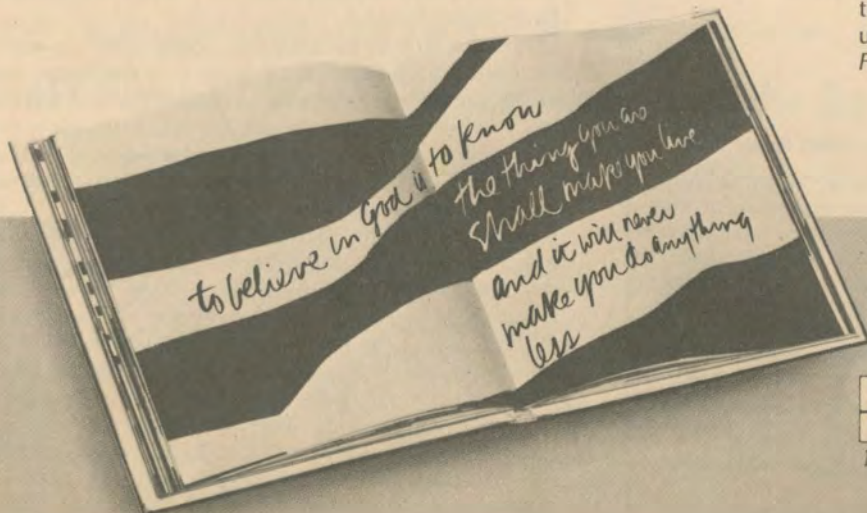 to believe in God is to know
the thing you are
shall make you live
and it will never
make you do anything
less